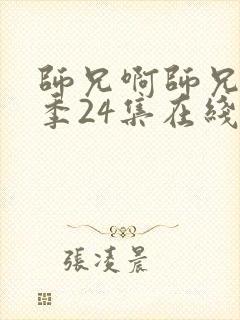 師兄啊師兄
季24集在綫
張凌晨